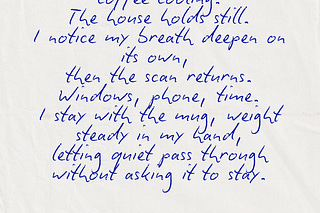 coffee cooling.
The house holds still.
I notice my breath deepen on
its own,
then the scan returns.
Windows, phone, time.
I stay with the mug, weight
steady in my hand,
letting quiet pass through
without asking it to stay.